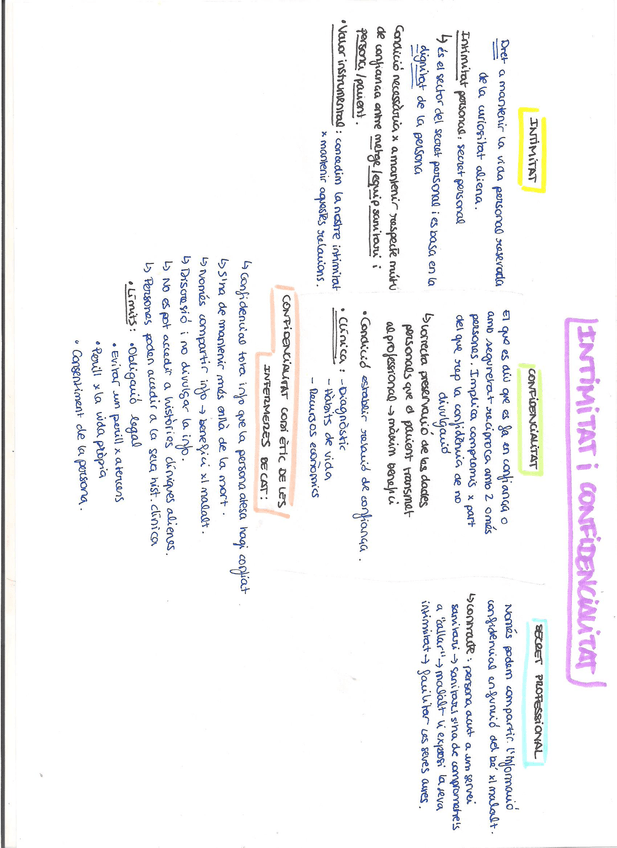 INTIMITAT i CONFIDENCIALITAT
INTIMITAT
Dret a mantenir la vida personal reservada
de la curiositat aliena.
Intimitat personal: secret personal
↳ és el sector del secret personal i es basa en la
dignitat de la persona
Condició necessària x a mantenir respecte mutu
de confiança entre metge/equip sanitari i
persona/pacient.
• Valor instrumental: concedim la nostre intimitat
x mantenir aquestes relacions.
CONFIDENCIALITAT
El que es diu que es fa en confiança o
amb seguretat recíproca amb 2 o més
persones. Implica compromís x part
del que rep la confidència de no
divulgació
↳ correcta preservació de les dades
personals que el pacient transmet
al professional → màxim benefici
• Condició establir relació de confiança.
• Clínica: - Diagnòstic
- Hàbits de vida
- Recursos econòmics
SECRET PROFESSIONAL
Només podem compartir l'informació
confidencial en funció del bé xl malalt.
↳ contracte: persona acut a un servei
sanitari → sanitari s'ha de comprometre's
a "callar" → malalt li exposi la seva
intimitat → facilitar les seves cures.
CONFIDENCIALITAT CODI ÈTIC DE LES
INFERMERES DE CAT:
↳ Confidencial tota info que la persona atesa hagi confiat.
↳ S'ha de mantenir més enllà de la mort.
↳ Només compartir info → benefici xl malalt.
↳ Discreció i no divulgar la info.
↳ No es pot accedir a històries clíniques alienes.
↳ Persones poden accedir a la seva hist. clínica
• Límits: • Obligació legal
• Evitar un perill x a tercers
• Perill x la vida pròpia
• Consentiment de la persona.